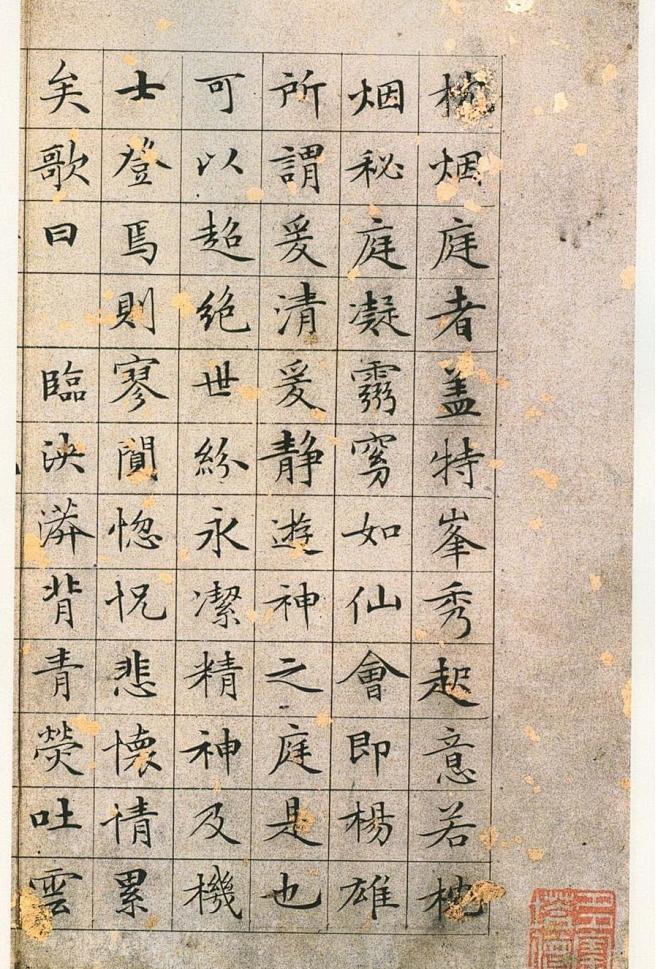 枕烟庭者盖特峯秀起意若枕
烟秘庭凝霛窅如仙會即楊雄
所謂爰清爰静遊神之庭是也
可以超絶世紛永潔精神及機
士登焉則寥闃惚怳悲懷情累
矣歌曰　臨泱漭背青熒吐雲